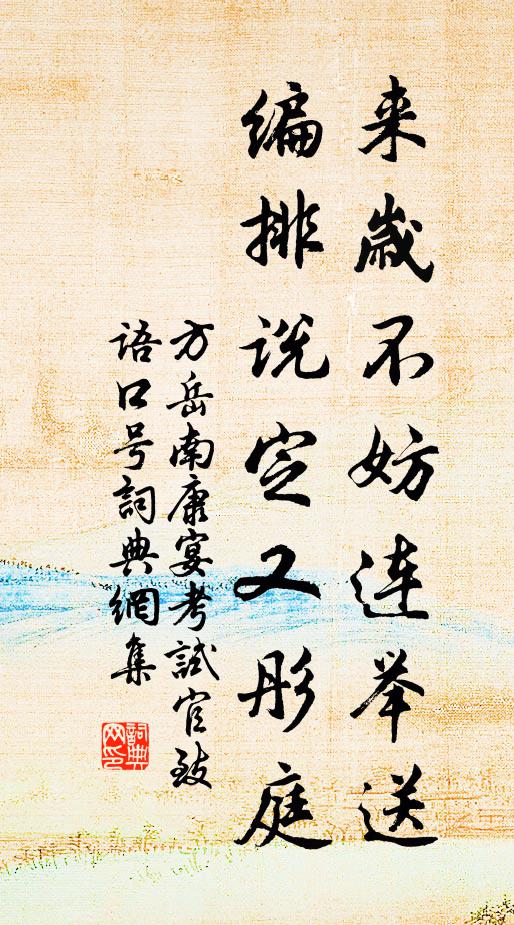 来岁不妨连举送
编排说定又彤庭
方岳南康宴考试官致
语口号詞典網集
詞典
网印